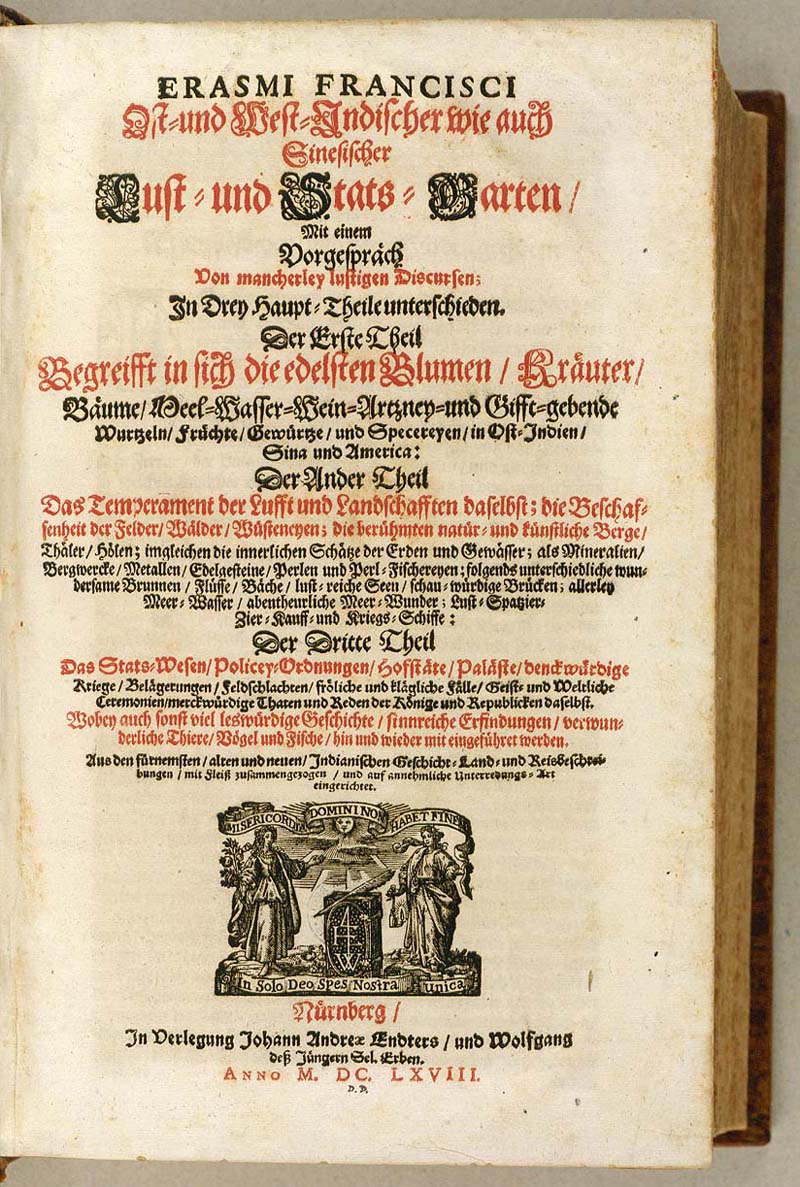 ERASMI FRANCISCI
Ost-und West-Indischer wie auch
Sinesischer
Lust- und Stats-Garten/
Mit einem
Vorgespräch
Von mancherley lustigen Discursen;
In Drey Haupt-Theile unterschieden.
Der Erste Theil
Begreifft in sich die edelsten Blumen/Kräuter/
Bäume/Meel-Wasser-Wein-Artzney-und Gifft-gebende
Wurtzeln/Früchte/Gewürtze/und Specereyen/in Ost-Indien/
Sina und America:
Der Ander Theil
Das Temperament der Lufft und Landschafften daselbst; die Beschaf-
fenheit der Felder/Wälder/Wüsteneyen; die berühmten natür- und künstliche Berge/
Thäler/Hölen; imgleichen die innerlichen Schätze der Erden und Gewässer; als Mineralien/
Bergwercke/Metallen/Edelgesteine/Perlen und Perl-Fischereyen: folgends unterschiedliche wun-
dersame Brunnen/Flüsse/Bäche/lust-reiche Seen/schau-würdige Brücken; allerley
Meer-Wasser/abentheurliche Meer-Wunder; Lust-Spatzier-
Zier-Kauff-und Kriegs-Schiffe:
Der Dritte Theil
Das Stats-Wesen/Policey-Ordnungen/Hofstäte/Paläste/denckwürdige
Kriege/Belägerungen/Feldschlachten/fröliche und klägliche Fälle/Geist- und Weltliche
Ceremonien/merckwürdige Thaten und Reden der Könige und Republicken daselbst.
Wobey auch sonst viel leswürdige Geschichte/sinnreiche Erfindungen/verwun-
derliche Thiere/Vögel und Fische/hin und wieder mit eingeführet werden.
Aus den fürnemsten/alten und neuen/Indianischen Geschicht-Land-und Reisbeschrei-
bungen/mit Fleiß zusammengezogen/und auf annehmliche Unterredungs-Art
eingerichtet.
MISERICORDIA DOMINI NON HABET FINEM
In Solo Deo Spes Nostra Unica
Nürnberg/
In Verlegung Johann Andreæ Endters/und Wolfgang
deß Jüngern Sel. Erben.
ANNO M. DC. LXVIII.
D.D.